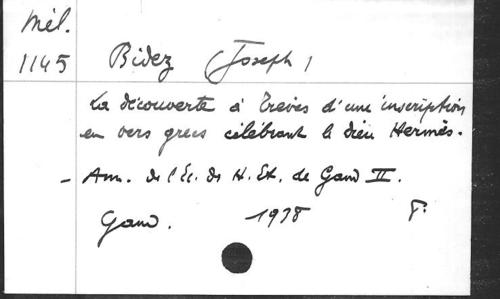 Mél.
1145 Bidez (Joseph)
La découverte à Trèves d'une inscription
en vers grecs célébrant le dieu Hermès.
- Ann. de l'Ec. de H. Et. de Gand II.
Gand. 1938 F.